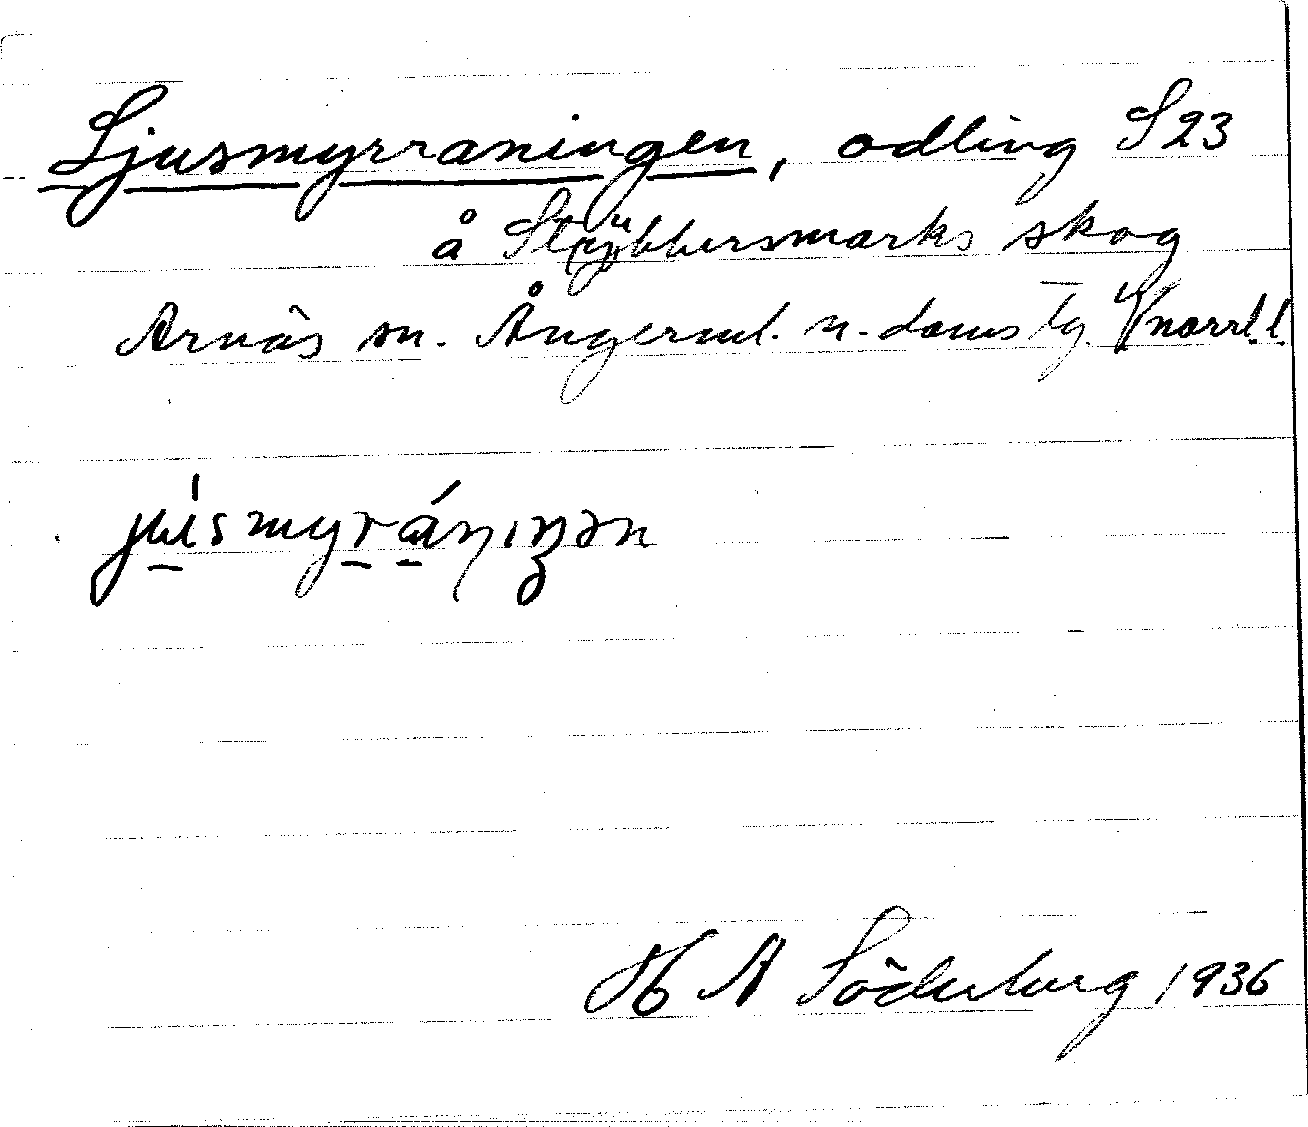 Ljusmyrraningen, odling S 23
å Stybbersmarks skog
Arnäs sn. Ångerml. n. doms tg. V/norrl. l.
jʉ́smyráṇıŋən
H A Söderberg 1936